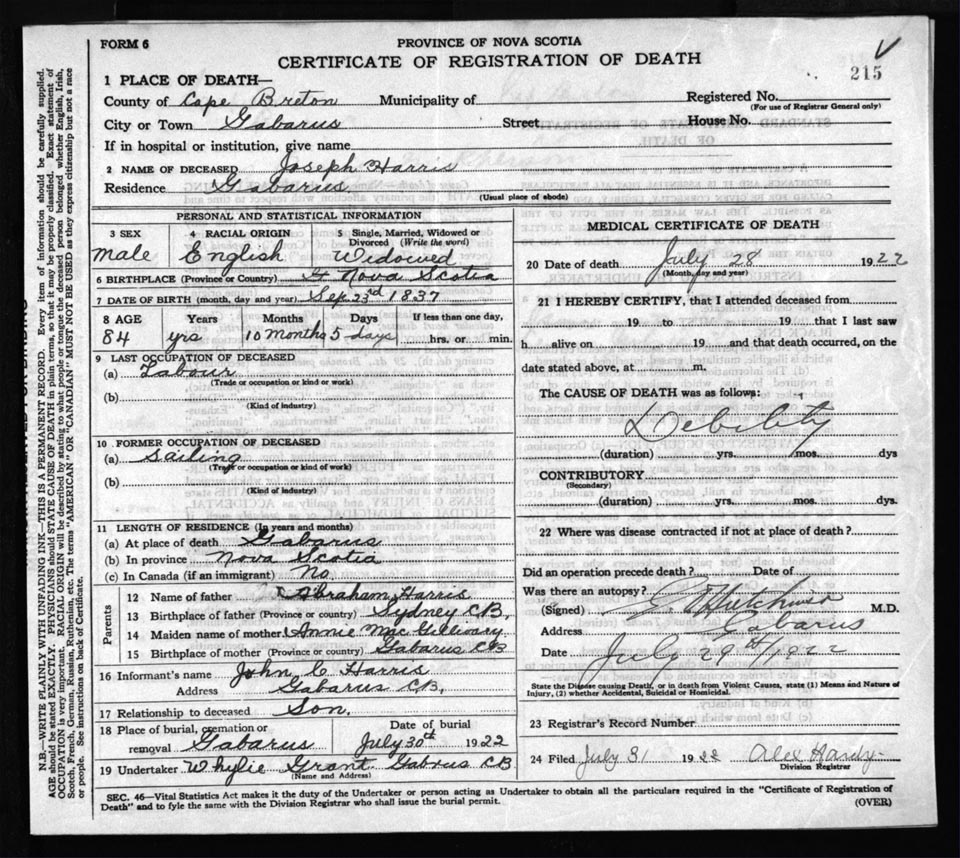 FORM 6
PROVINCE OF NOVA SCOTIA
CERTIFICATE OF REGISTRATION OF DEATH
215
1 PLACE OF DEATH—
County of Cape Breton Municipality of Registered No.
(For use of Registrar General only)
City or Town Gabarus Street House No.
If in hospital or institution, give name
2 NAME OF DECEASED Joseph Harris
Residence Gabarus
(Usual place of abode)
PERSONAL AND STATISTICAL INFORMATION
3 SEX 4 RACIAL ORIGIN 5 Single, Married, Widowed or Divorced (Write the word)
Male English Widowed
6 BIRTHPLACE (Province or Country) Nova Scotia
7 DATE OF BIRTH (month, day and year) Sep 23rd 1837
8 AGE Years Months Days If less than one day,
84 yrs 10 Months 5 days hrs. or min.
9 LAST OCCUPATION OF DECEASED
(a) Labour
(Trade or occupation or kind or work)
(b)
(Kind of industry)
10 FORMER OCCUPATION OF DECEASED
(a) Sailing
(Trade or occupation or kind of work)
(b)
(Kind of industry)
11 LENGTH OF RESIDENCE (In years and months)
(a) At place of death Gabarus
(b) In province Nova Scotia
(c) In Canada (if an immigrant) No
Parents
12 Name of father Abraham Harris
13 Birthplace of father (Province or country) Sydney C.B,
14 Maiden name of mother Annie Mac Gillivary
15 Birthplace of mother (Province or country) Gabarus C.B
16 Informant's name John C Harris
Address Gabarus C.B,
17 Relationship to deceased Son.
18 Place of burial, cremation or removal Gabarus
Date of burial
July 30th 1922
19 Undertaker Whylie Grant Gabrus C.B
(Name and Address)
MEDICAL CERTIFICATE OF DEATH
20 Date of death July 28 1922
(Month, day and year)
21 I HEREBY CERTIFY, that I attended deceased from
19 to 19 that I last saw
h alive on 19 and that death occurred, on the
date stated above, at m.
The CAUSE OF DEATH was as follows:
Debility
(duration) yrs. mos. dys
CONTRIBUTORY
(Secondary)
(duration) yrs. mos. dys.
22 Where was disease contracted if not at place of death?
Did an operation precede death? Date of
Was there an autopsy?
(Signed) M.D.
Address Gabarus
Date July 29th/1922
State the Disease causing Death, or in death from Violent Causes, state (1) Means and Nature of
Injury, (2) whether Accidental, Suicidal or Homicidal.
23 Registrar's Record Number
24 Filed July 31 1922 Alex Hardy
Division Registrar
SEC. 46—Vital Statistics Act makes it the duty of the Undertaker or person acting as Undertaker to obtain all the particulars required in the "Certificate of Registration of
Death" and to fyle the same with the Division Registrar who shall issue the burial permit.
(OVER)
N.B.—WRITE PLAINLY WITH UNFADING INK—THIS IS A PERMANENT RECORD. Every item of information should be carefully supplied.
AGE should be stated EXACTLY. PHYSICIANS should STATE CAUSE OF DEATH in plain terms, so that it may be properly classified. Exact statement of
OCCUPATION is very important. RACIAL ORIGIN will be described by stating to what people or tongue the deceased person belonged whether English, Irish,
Scotch, French, German, Russian, Ruthenian, etc. The terms "AMERICAN" OR "CANADIAN" MUST NOT BE USED as they express citizenship but not a race
or people. See instructions on back of Certificate.